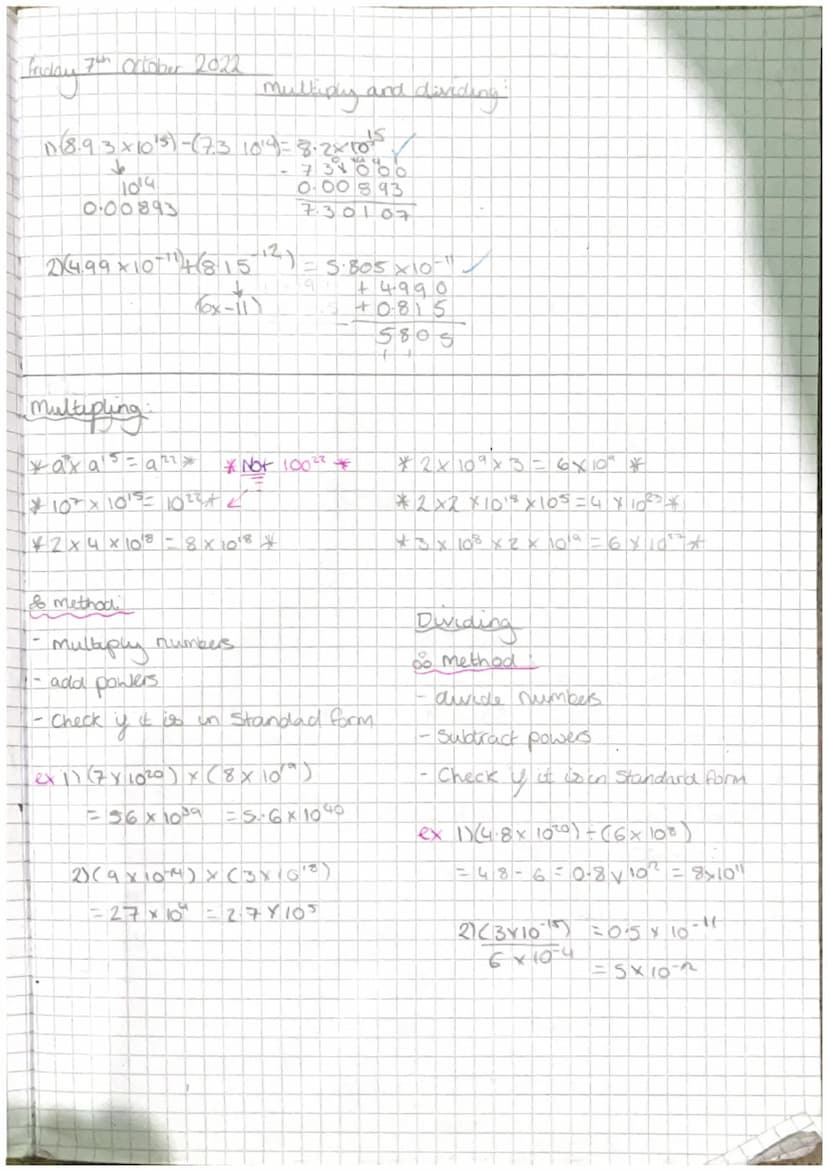 Friday 7th October 2022
Multiply and dividing:
1) (8.93 × 10¹⁵) - (7.3 10¹⁴) = 8.2 × 10¹⁵ ✓
↓
10¹⁴
0.00893
0.00893
7.30107
2) (4.99 × 10⁻¹¹) + (8.15⁻¹²) = 5.805 × 10⁻¹¹ ✓
↓
(6x-11)
+ 4.990
+ 0.815
5805
1 1
Multipling:
* a⁷ x a¹⁵ = a²² * * Not 100²² *
* 10⁷ × 10¹⁵ = 10²² *
* 2 × 4 × 10¹⁸ = 8 × 10¹⁸ *
* 2 × 10⁹ × 3 = 6 × 10⁹ *
* 2 × 2 × 10¹⁸ × 10⁵ = 4 × 10²³ *
* 3 × 10⁸ × 2 × 10¹⁹ = 6 × 10²⁷ *
method:
- multiply numbers
- add powers
- Check if it is in Standad form
ex 1) (7 × 10²⁰) × (8 × 10¹⁹)
= 56 × 10³⁹ = 5.6 × 10⁴⁰
2) (9 × 10⁻¹⁴) × (3 × 10¹⁸)
= 27 × 10⁴ = 2.7 × 10⁵
Dividing
method:
- divide numbers
- Subtract powers
- Check if it is in Standard form
ex 1) (4.8 × 10²⁰) ÷ (6 × 10⁸)
= 48 - 6 = 0.8 × 10¹² = 8×10¹¹
2) (3×10⁻¹⁵) = 0.5 × 10⁻¹¹
6 × 10⁻⁴
= 5 × 10⁻¹²